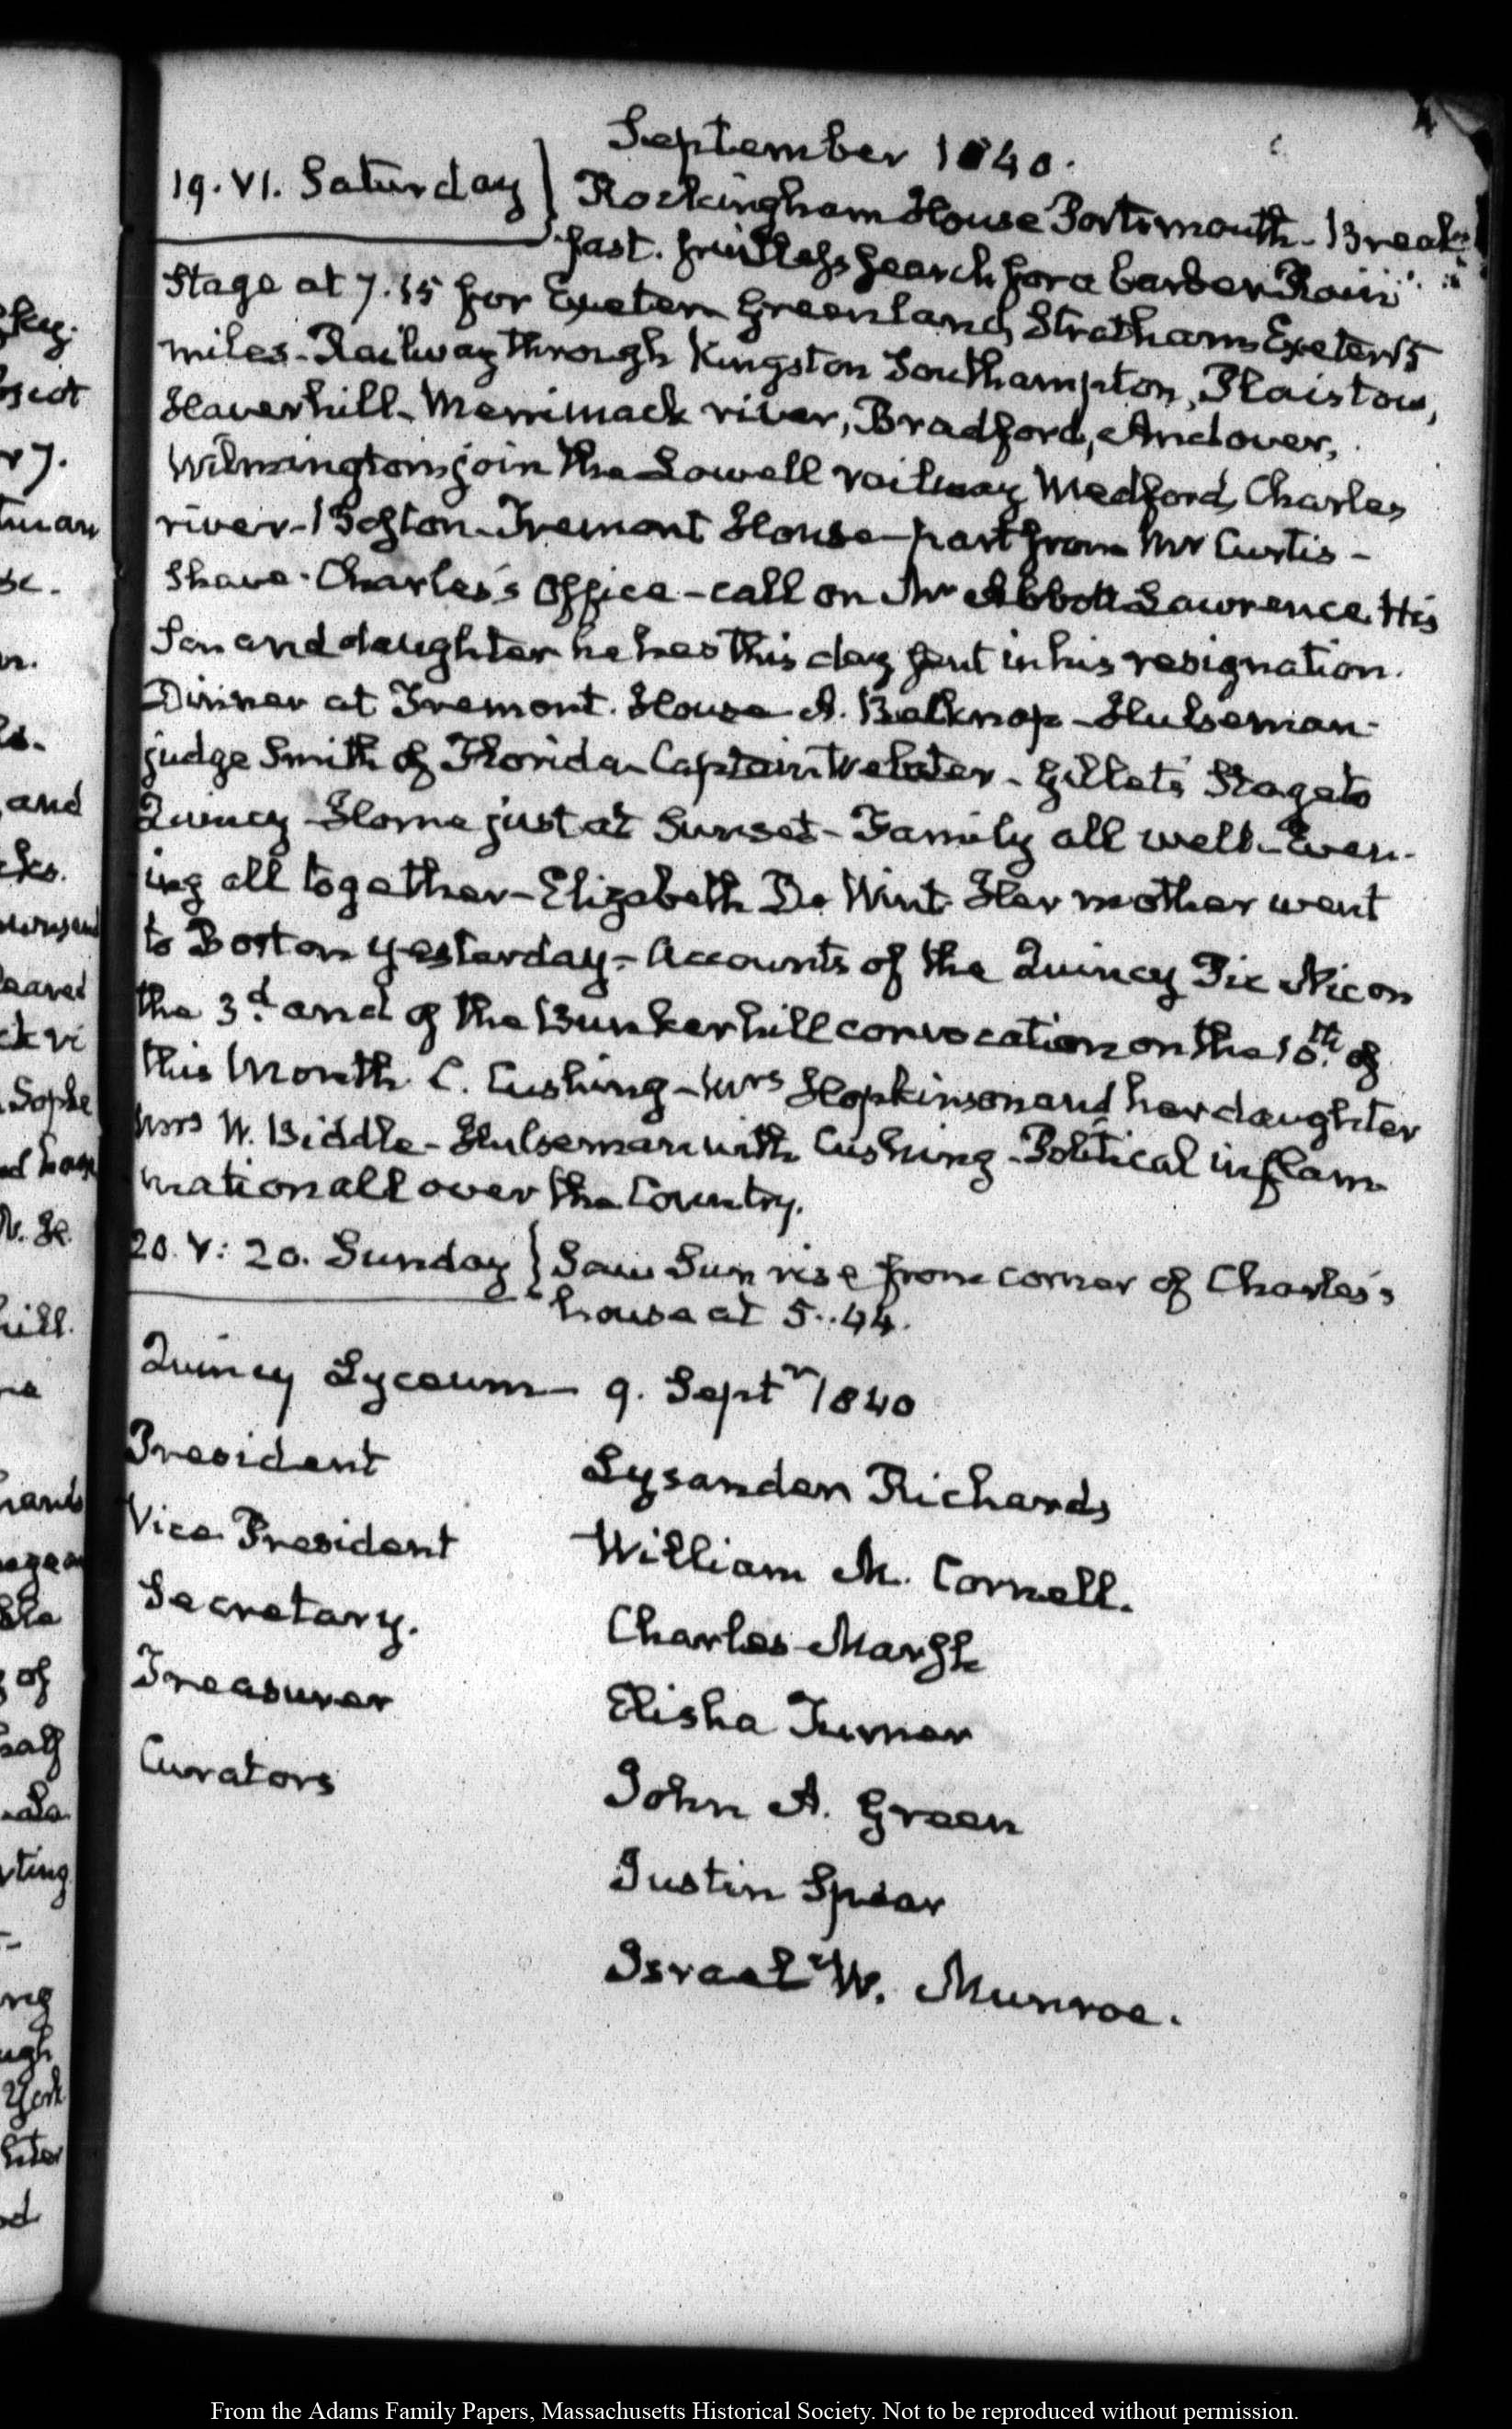 September 1840.
19. VI. Saturday } Rockingham House Portsmouth - Break
fast. fruitless search for a barber Rain
Stage at 7.15 for Exeter Greenland, Stratham Exeter 15
miles - Railway through Kingston Southampton, Plaistow,
Haverhill - Merrimack river, Bradford, Andover,
Wilmington join the Lowell railway Medford, Charles
river - Boston - Tremont House - part from Mr Curtis -
Shave - Charles's Office - call on Mr Abbott Lawrence. His
Son and daughter he has this day sent in his resignation.
Dinner at Tremont House A. Belknap - Hulseman -
judge Smith of Florida - Captain Webster - Gillet's Stage to
Quincy - Home just at Sunset - Family all well - Even-
ing all together - Elizabeth De Wint Her mother went
to Boston yesterday - Accounts of the Quincy Pic Nic on
the 3.d and of the Bunkerhill convocation on the 10.th of
this Month C. Cushing - Mrs Hopkinson and her daughter
Mrs W. Biddle - Hulseman with Cushing - Political inflam
mation all over the Country.
20. V: 20. Sunday } Saw Sun rise from corner of Charles's
house at 5..44.
Quincy Lyceum - 9. Septr 1840
President Lysander Richards
Vice President William M. Cornell.
Secretary. Charles Marsh
Treasurer Elisha Turner
Curators John A. Green
Justin Spear
Israel W. Munroe.
From the Adams Family Papers, Massachusetts Historical Society. Not to be reproduced without permission.